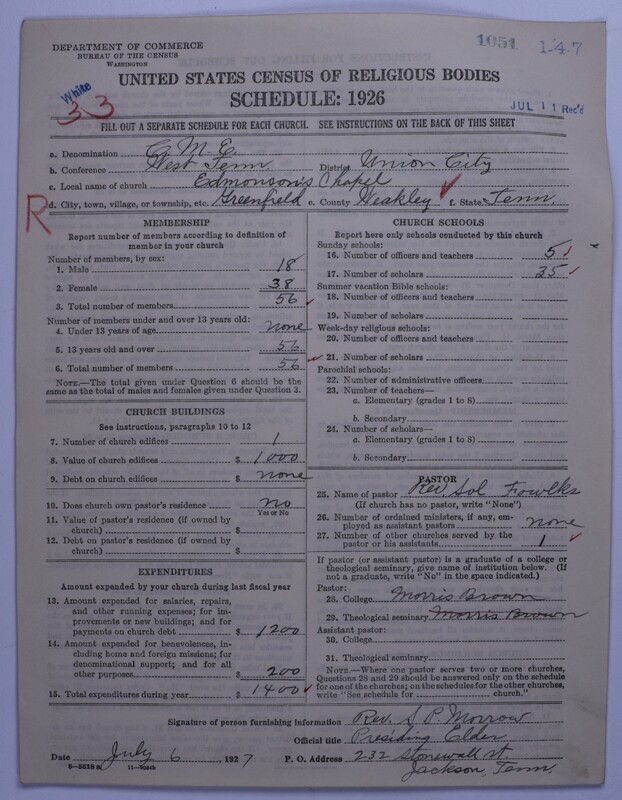 DEPARTMENT OF COMMERCE
BUREAU OF THE CENSUS
WASHINGTON
1051
1-47
UNITED STATES CENSUS OF RELIGIOUS BODIES
SCHEDULE: 1926
White
33
JUL 11 Rec'd
FILL OUT A SEPARATE SCHEDULE FOR EACH CHURCH. SEE INSTRUCTIONS ON THE BACK OF THIS SHEET
a. Denomination C. M. E.
b. Conference West Tenn. District Union City
c. Local name of church Edmonson's Chapel
R
d. City, town, village, or township, etc. Greenfield e. County Weakley f. State Tenn.
MEMBERSHIP
Report number of members according to definition of
member in your church
Number of members, by sex:
1. Male 18
2. Female 38
3. Total number of members 56
Number of members under and over 13 years old:
4. Under 13 years of age none
5. 13 years old and over 56
6. Total number of members 56
NOTE.—The total given under Question 6 should be the
same as the total of males and females given under Question 3.
CHURCH BUILDINGS
See instructions, paragraphs 10 to 12
7. Number of church edifices 1
8. Value of church edifices $ 1000
9. Debt on church edifices $ none
10. Does church own pastor's residence no
Yes or No
11. Value of pastor's residence (if owned by
church) $
12. Debt on pastor's residence (if owned by
church) $
EXPENDITURES
Amount expended by your church during last fiscal year
13. Amount expended for salaries, repairs,
and other running expenses; for im-
provements or new buildings; and for
payments on church debt $ 1200
14. Amount expended for benevolences, in-
cluding home and foreign missions; for
denominational support; and for all
other purposes $ 200
15. Total expenditures during year $ 1400
CHURCH SCHOOLS
Report here only schools conducted by this church
Sunday schools:
16. Number of officers and teachers 5
17. Number of scholars 35
Summer vacation Bible schools:
18. Number of officers and teachers
19. Number of scholars
Week-day religious schools:
20. Number of officers and teachers
21. Number of scholars
Parochial schools:
22. Number of administrative officers
23. Number of teachers—
a. Elementary (grades 1 to 8)
b. Secondary
24. Number of scholars—
a. Elementary (grades 1 to 8)
b. Secondary
PASTOR
25. Name of pastor Rev. Sol Fowlks
(If church has no pastor, write "None")
26. Number of ordained ministers, if any, em-
ployed as assistant pastors none
27. Number of other churches served by the
pastor or his assistants 1
If pastor (or assistant pastor) is a graduate of a college or
theological seminary, give name of institution below. (If
not a graduate, write "No" in the space indicated.)
Pastor:
28. College Morris Brown
29. Theological seminary Morris Brown
Assistant pastor:
30. College
31. Theological seminary
NOTE.—Where one pastor serves two or more churches,
Questions 28 and 29 should be answered only on the schedule
for one of the churches; on the schedules for the other churches,
write "See schedule for church."
Signature of person furnishing information Rev. S P. Morrow
Official title Presiding Elder
Date July 6, 1927 P. O. Address 232 Stonewall st.
Jackson, Tenn.